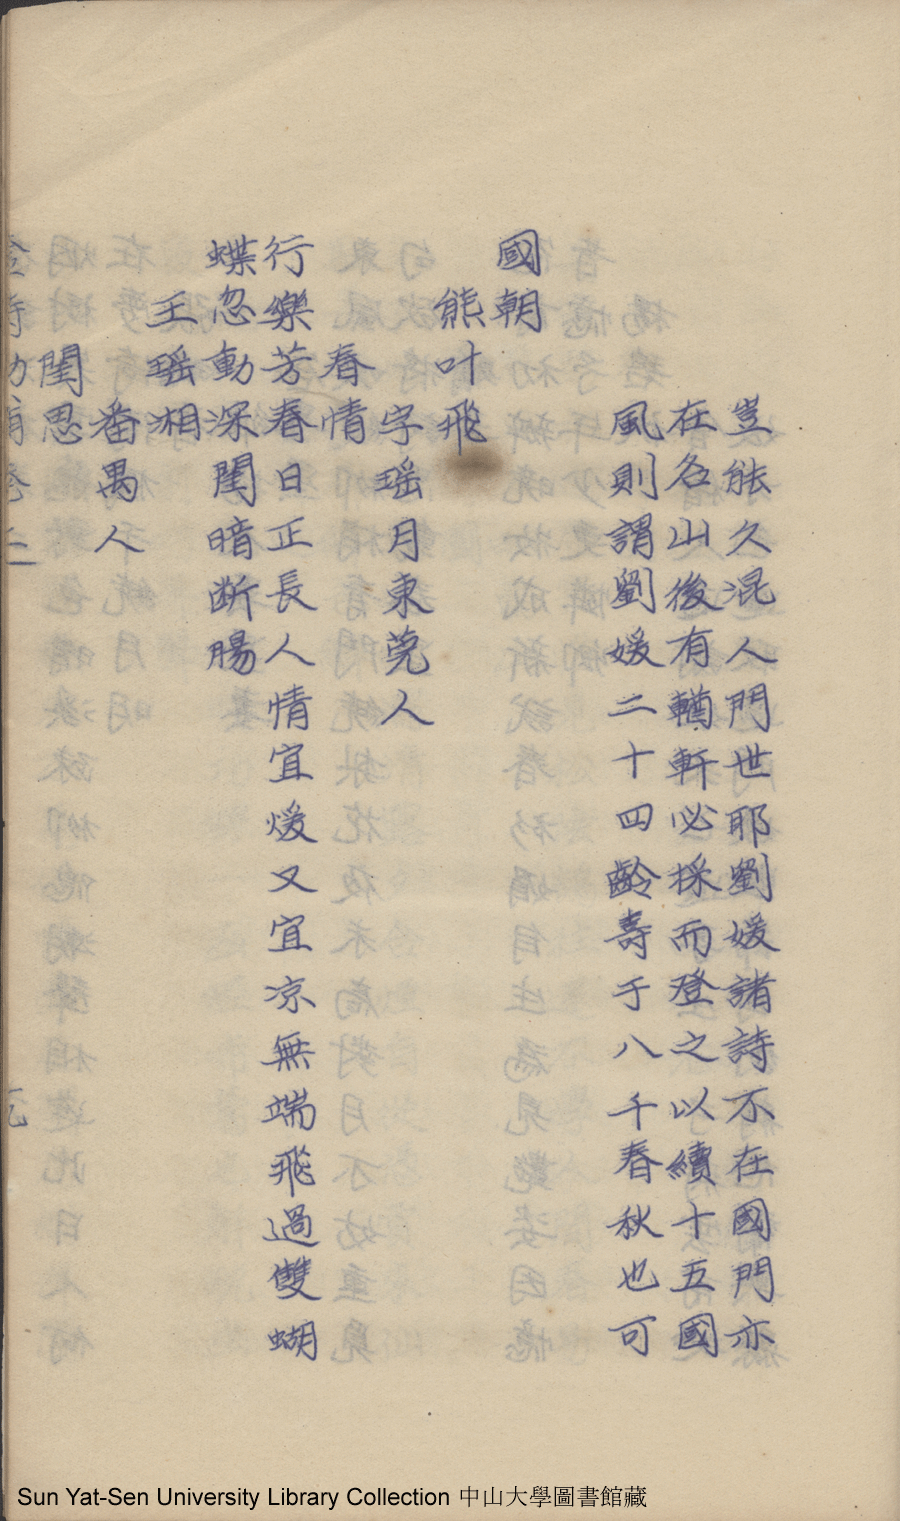 豈能久混人門世耶劉媛諸詩不在國門亦
在名山後有輶軒必採而登之以續十五國
風則謂劉媛二十四齡壽于八千春秋也可
國朝
熊叶飛
字瑶月東莞人
春情
行樂芳春日正長人情宜煖又宜凉無端飛過雙蝴
蝶忽動深閨暗断腸
王瑶湘
番禺人
閨思
Sun Yat-Sen University Library Collection 中山大學圖書館藏